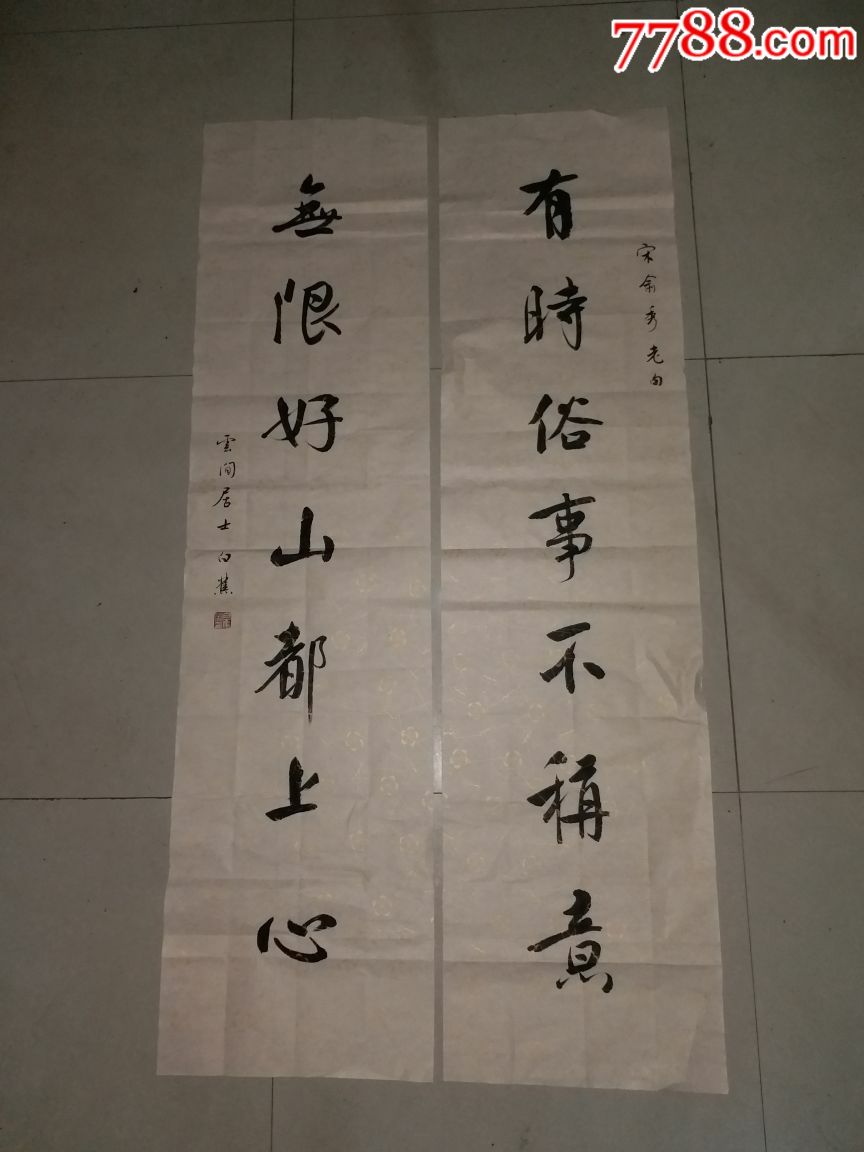 7788.com
宋俞秀老句
有時俗事不稱意
無限好山都上心
雲間居士白蕉